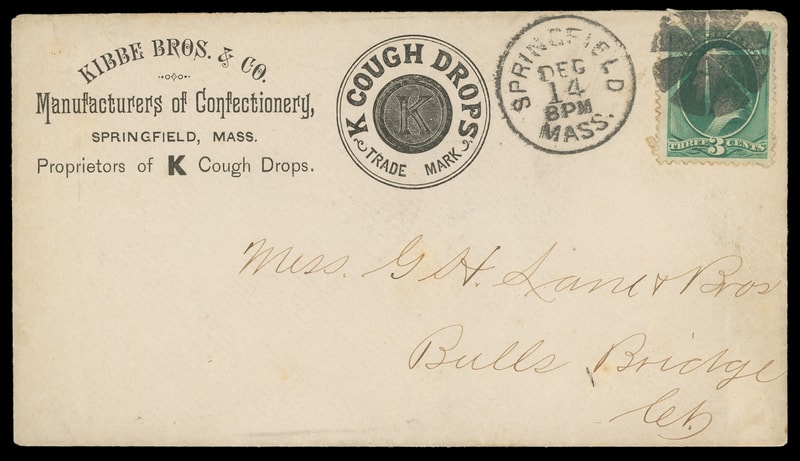 KIBBE BROS. & CO.
Manufacturers of Confectionery,
SPRINGFIELD, MASS.
Proprietors of K Cough Drops.
K COUGH DROPS.
K
TRADE MARK
SPRINGFIELD
DEC
14
8PM
MASS.
THREE 3 CENTS
Mess. G H. Lane & Bros
Bulls Bridge
Ct.